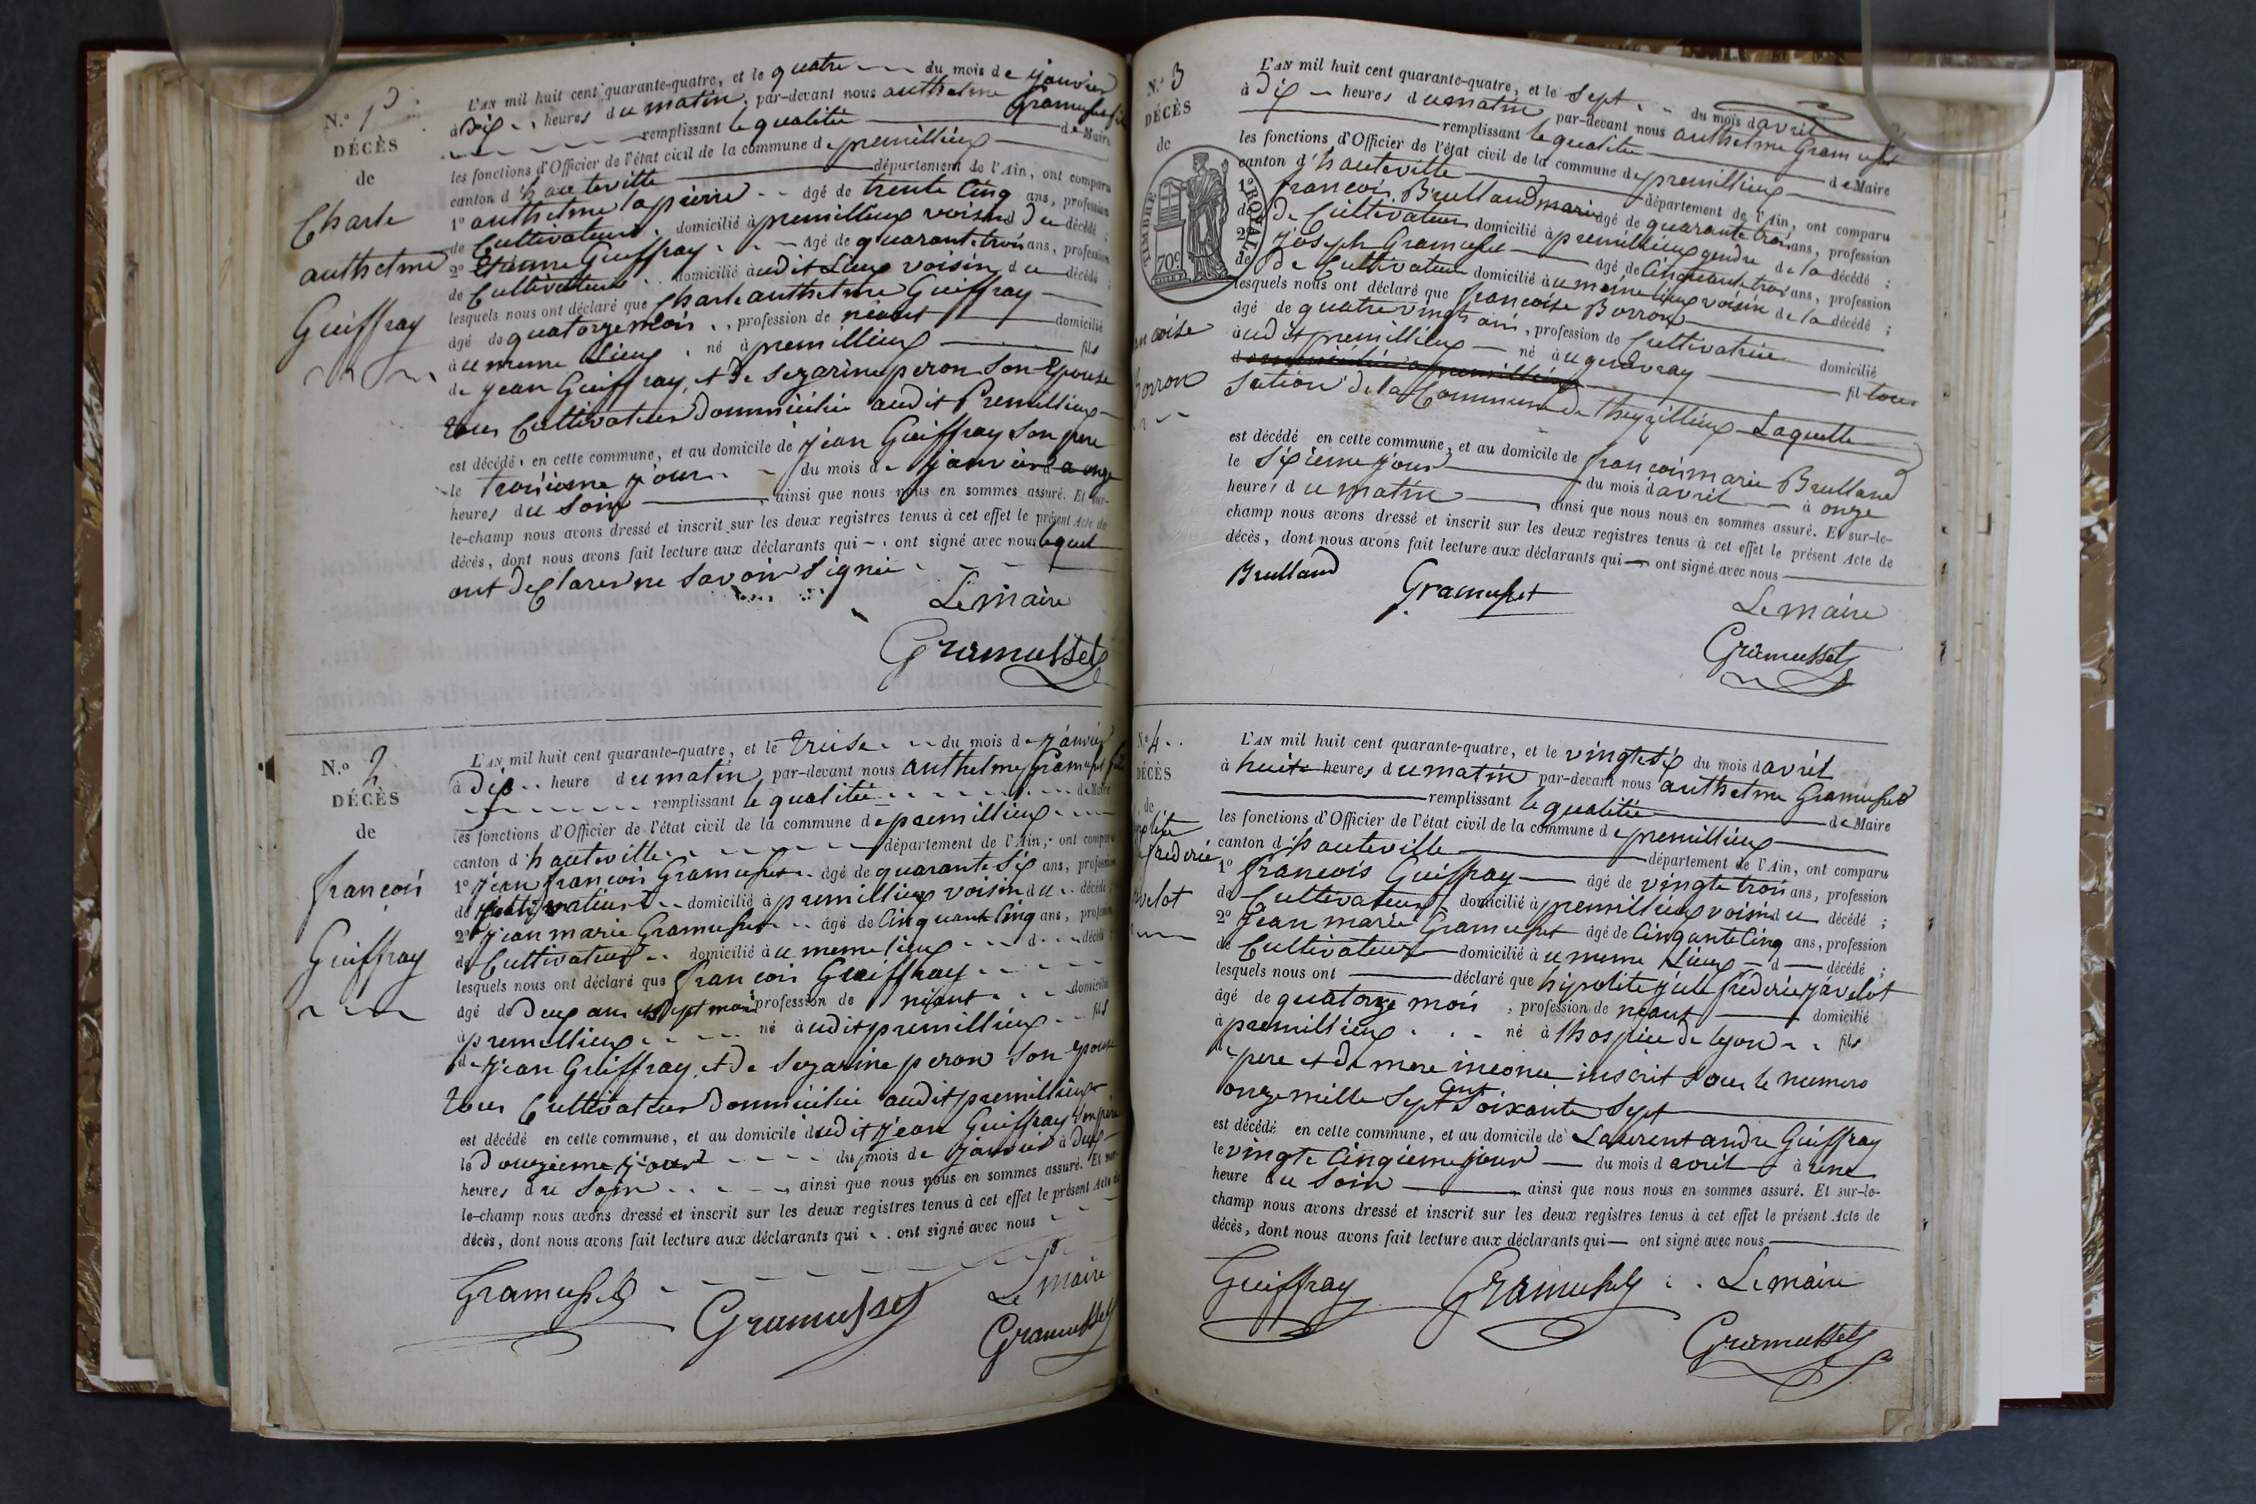 N.º 1
DÉCÈS
de
Charle
anthelme
Guiffray
L'AN mil huit cent quarante-quatre, et le quatre du mois de janvier
à Dix heures du matin, par-devant nous anthelme Gramusset
remplissant le qualitée de Maire
les fonctions d'Officier de l'état civil de la commune de premillieux
canton d'hauteville département de l'Ain, ont comparu
1º anthelme lapierre âgé de trente Cinq ans, profession
de Cultivateur domicilié à premillieux voisin du décédé ;
2º Etienne Guiffray âgé de quarante trois ans, profession
de Cultivateur domicilié audit Lieux voisin du décédé ;
lesquels nous ont déclaré que Charle anthelme Guiffray
âgé de quatorze mois, profession de néant domicilié
à u meme Lieux, né à premillieux fils
de jean Guiffray, et de sezarine peron son Epouse
tous Cultivateur Dommicilié audit Premillieux
est décédé, en cette commune, et au domicile de jean Guiffray son pere
le troisieme jour du mois de janvier à onze
heures du Soir ainsi que nous nous en sommes assuré. Et sur-
le-champ nous avons dressé et inscrit sur les deux registres tenus à cet effet le présent Acte de
décès, dont nous avons fait lecture aux déclarants qui ont signé avec nous lequel
ont Déclarer ne savoir signer
Le maire
Gramusset
N.º 2
DÉCÈS
de
françois
Guiffray
L'AN mil huit cent quarante-quatre, et le treise du mois de janvier
à Dix heure du matin, par-devant nous anthelme Gramusset
remplissant le qualitée de Maire
les fonctions d'Officier de l'état civil de la commune de premillieux
canton d'hauteville département de l'Ain, ont comparu
1º jean françois Gramusset âgé de quarante Six ans, profession
de Cultivateur domicilié à premillieux voisin du décédé
2º jean marie Gramusset âgé de Cinquante Cinq ans, profession
de Cultivateur domicilié à u meme lieux d décédé
lesquels nous ont déclaré que françois Guiffray
âgé de Deux ans et Sept mois profession de néant domicilié
à premillieux né audit premillieux fils
de jean Guiffray, et de sezarine peron son epouse
tous Cultivateur Dommicilié audit premillieux
est décédé en cette commune, et au domicile dudit jean Guiffray son père
le Douzieme jour du mois de janvier à deux
heures du Soir ainsi que nous nous en sommes assuré. Et sur-
le-champ nous avons dressé et inscrit sur les deux registres tenus à cet effet le présent Acte de
décès, dont nous avons fait lecture aux déclarants qui ont signé avec nous
Le maire
Gramusset Gramusset
Gramusset
N.º 3
DÉCÈS
de
TIMBRE ROYAL
70c
ancoise
Borron
L'AN mil huit cent quarante-quatre, et le Sept du mois d'avril
à Dix heures du matin par-devant nous anthelme Gramusset
remplissant le qualitée de Maire
les fonctions d'Officier de l'état civil de la commune de premillieux
canton d'hauteville département de l'Ain, ont comparu
1º francois Brulland marie âgé de quarante trois ans, profession
de Cultivateur domicilié à premillieux gendre de la décédé ;
2º joseph Gramusset âgé de Cinquante trois ans, profession
de Cultivateur domicilié à u meme lieux voisin de la décédé ;
lesquels nous ont déclaré que francoise Borron
âgé de quatre vingts ans, profession de Cultivatrice domicilié
audit premillieux né à ugnavray fil tous
dommicilié a premillieux
section de la Commune de theyzillieux Laquelle
est décédé en cette commune, et au domicile de francois marie Brulland
le Sixieme jour du mois d'avril à onze
heures du matin ainsi que nous nous en sommes assuré. Et sur-le-
champ nous avons dressé et inscrit sur les deux registres tenus à cet effet le présent Acte de
décès, dont nous avons fait lecture aux déclarants qui ont signé avec nous
Brulland Gramusset Le maire
Gramusset
N.º 4
DÉCÈS
de
polite
frederic
avelot
L'AN mil huit cent quarante-quatre, et le vingt Six du mois d'avril
à huite heures du matin par-devant nous anthelme Gramusset
remplissant le qualitée de Maire
les fonctions d'Officier de l'état civil de la commune de premillieux
canton d'hauteville département de l'Ain, ont comparu
1º francois Guiffray âgé de vingte trois ans, profession
de Cultivateur domicilié à premillieux voisin du décédé ;
2º jean marie Gramusset âgé de Cinqante Cinq ans, profession
de Cultivateur domicilié à u meme Lieux d décédé ;
lesquels nous ont déclaré que hipolite jule frederic javelot
âgé de quatorze mois, profession de néant domicilié
à premillieux né à lhospice de lyon fils
de pere et de mere inconue inscrit sous le numero
onze mille Sept cent Soixante Sept
est décédé en cette commune, et au domicile de Laurent andre Guiffray
le vingte Cinqieme jour du mois d avril à une
heure du Soir ainsi que nous nous en sommes assuré. Et sur-le-
champ nous avons dressé et inscrit sur les deux registres tenus à cet effet le présent Acte de
décès, dont nous avons fait lecture aux déclarants qui ont signé avec nous
Guiffray Gramusset Le maire
Gramusset